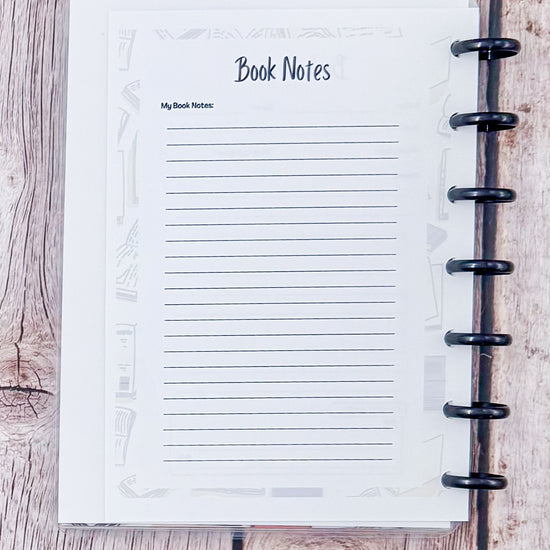 Book Notes
My Book Notes: